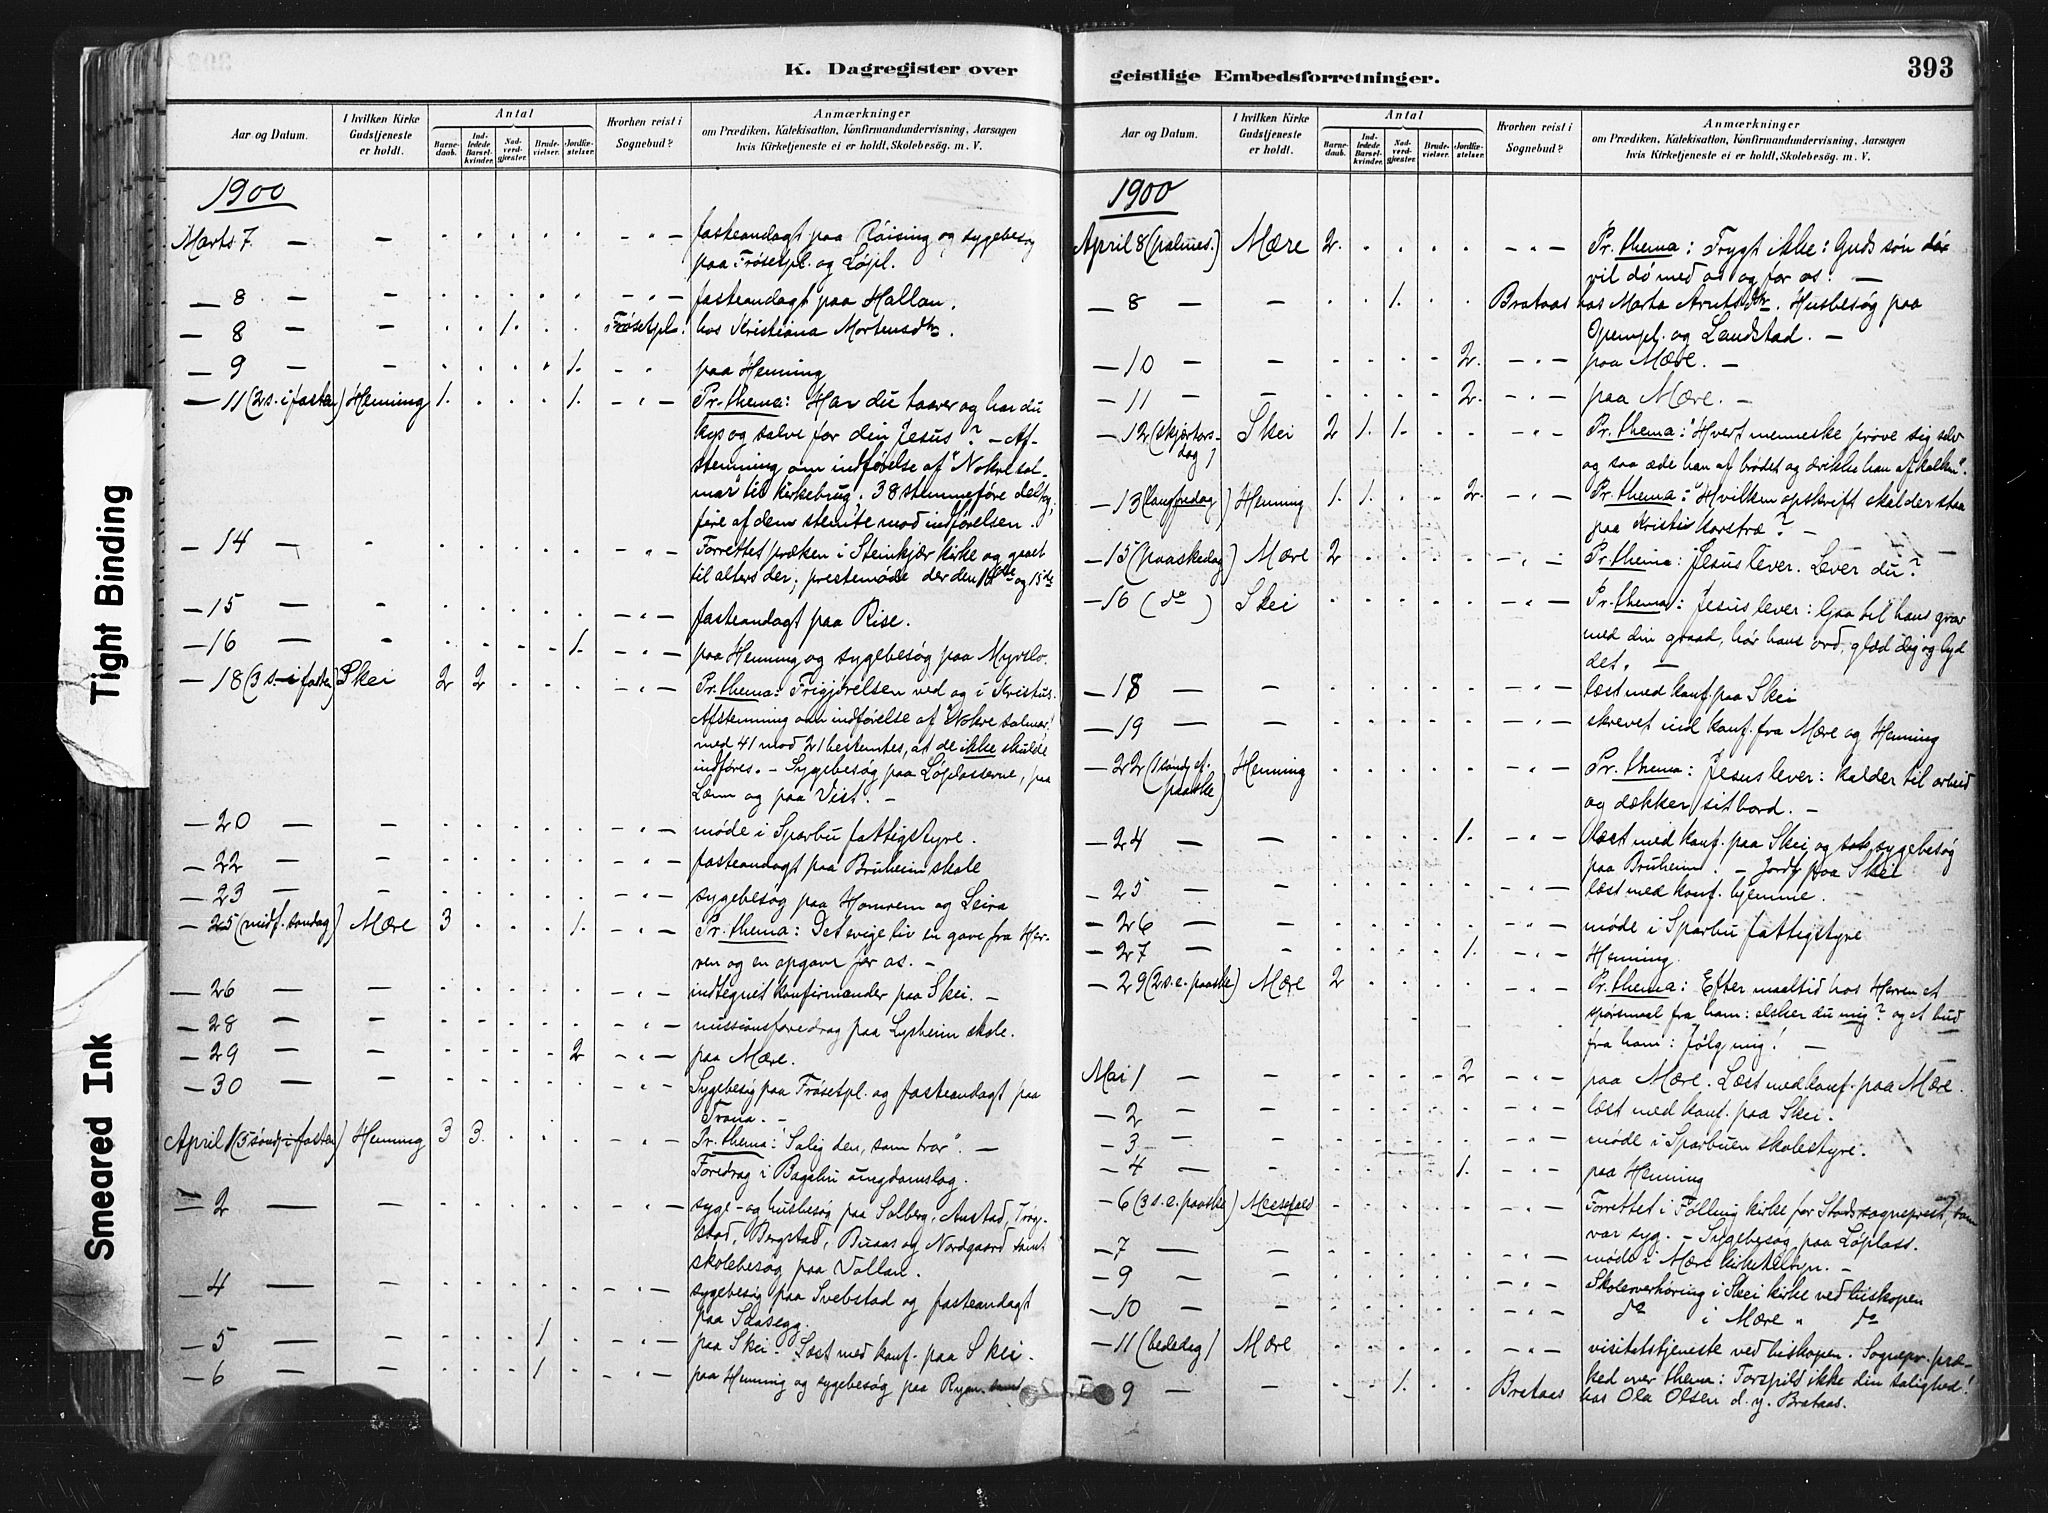 K. Dagregister over
Aar og Datum.
I hvilken Kirke Gudstjeneste er holdt.
Antal
Barnedaab.
Indledede Barselkvinder.
Nadverdgjester.
Brudevielser.
Jordfæstelser.
Hvorhen reist i Sognebud?
Anmærkninger
om Prædiken, Katekisation, Konfirmandundervisning, Aarsagen
hvis Kirketjeneste ei er holdt, Skolebesøg. m. V.
1900
Marts 7. — - - " - fasteandagt paa Råising og sygebesøg
paa Frøsetpl. og Løpl.
— 8 — - - " - fasteandagt paa Hallan.
— 8 — - 1. Frøsetpl. hos Kristiana Mortensdtr.
— 9 — - 1. - " paa Henning
— 11 (2 s. i fasten) Henning 1. 1. - " - Pr. thema: Har du taarer og har du
kys og salve for din Jesus? — Af-
stemning om indførelse af "Nokre sal-
mar" til kirkebrug. 38 stemmeføre deltog,
fire af dem stemte mod indførelsen.
— 14 — - - " - Forrettet præken i Steinkjær kirke og gaaet
til alters der; prestemøde der den 14de og 15de
— 15 — - - " - fasteandagt paa Rise.
— 16 — - 1. - " - paa Henning og sygebesøg paa Myrslo.
— 18 (3 s. i fasten) Skei 2 2 - " - Pr. thema: Frigjørelsen ved og i Kristus.
Afstemning om indførelse af "Nokre salmar"
med 41 mod 21 bestemtes, at de ikke skulde
indføres. — Sygebesøg paa Løplasserne, paa
Lænn og paa Vist. —
— 20 — - - " - møde i Sparbu fattigstyre.
— 22 — - - " - fasteandagt paa Bruheim skole
— 23 — - - " - sygebesøg paa Homrem og Leira
— 25 (midf. søndag) Mære 3 1. - " - Pr. thema: Det evige liv en gave fra Her-
ren og en opgave for os. —
— 26 — - - " - indtegnet konfirmander paa Skei. —
— 28 — - - " - missionsforedrag paa Lysheim skole.
— 29 — - 2 - " - paa Mære.
— 30 — - - " - Sygebesøg paa Frøsetpl. og fasteandagt paa
Trana. —
April 1 (5 sønd. i fasten) Henning 3 3. - " - Pr. thema: "Salig den, som tror". —
Foredrag i Bagabu ungdomslag.
— 2 — - - " - syge- og husbesøg paa Solberg, Austad, Tryg-
stad, Bergstad, Buaas og Nordgaard samt
skolebesøg paa Vollan.
— 4 — - - " - sygebesøg paa Svebstad og fasteandagt
paa Saasegg.
— 5 — - 1 - " - paa Skei. Læst med konf. paa Skei.
— 6 — - 1 - " - paa Henning og sygebesøg paa Ryan
geistlige Embedsforretninger.
393
Aar og Datum.
I hvilken Kirke Gudstjeneste er holdt.
Antal
Barnedaab.
Indledede Barselkvinder.
Nadverdgjester.
Brudevielser.
Jordfæstelser.
Hvorhen reist i Sognebud?
Anmærkninger
om Prædiken, Katekisation, Konfirmandundervisning, Aarsagen
hvis Kirketjeneste ei er holdt, Skolebesøg. m. V.
1900
April 8 (palmes.) Mære 2. - " - Pr. thema: Frygt ikke: Guds søn
vil dø med os og for os. —
— 8 — - 1. Brataas hos Marta Arntsdtr. Husbesøg paa
og Landstad. —
— 10 — - 2. - " - paa Mære. —
— 11 — - 2. - " - paa Mære. —
— 12 (skjærtors- Skei 2 1. 1. - " - Pr. thema: "Hvert menneske prøve sig selv
dag) og saa æde han af brødet og drikke han af kalken".
— 13 (langfredag) Henning 1. 1. 2. - " - Pr. thema: "Hvilken opskrift skal der staa
paa Kristi korstræ? —
— 15 (paaskedag) Mære 2 - " - Pr. thema: Jesus lever. Lever du?
— 16 (do) Skei - " - Pr. thema: Jesus lever: Gaa til hans grav
med din graad, hør hans ord, glæd dig og lyd
det. —
— 18 — - - " - læst med konf. paa Skei
— 19 — - - " - skrevet ind konf. fra Mære og Henning
— 22 (1 sønd. ef. Henning - " - Pr. thema: Jesus lever: kalder til arbeid
paaske) og dækker sit bord. —
— 24 — - 1. - " - læst med konf. paa Skei og sygebesøg
paa Bruheim. — Jordf. paa Skei
— 25 — - - " - læst med konf. hjemme.
— 26 — - - " - møde i Sparbu fattigstyre
— 27 — - 1. - " - Henning.
— 29 (2 s. e. paaske) Mære 2 - " - Pr. thema: Efter maaltid hos Herren et
spørsmaal fra ham: elsker du mig? og et bud
fra ham: Følg mig! —
Mai 1 — - 2 - " - paa Mære. Læst med konf. paa Mære.
— 2 — - - " - læst med konf. paa Skei.
— 3 — - - " - møde i Sparbuen skolestyre.
— 4 — - 1. - " - paa Henning
— 6 (3 s. e. paaske) Messefald - " - Forrettet i Følling kirke for Stods sogneprest, som
var syg. — Sygebesøg paa Løplass.
— 7 — - - " - møde i Mære kirketilsyn. —
— 9 — - - " - Skoleoverhøring i Skei kirke ved biskopen
— 10 — - - " - do i Mære " do
— 11 (bededag) Mære - " - visitatstjeneste ved biskopen. Sognepr. præ-
ked over thema: Forspild ikke din salighed!
9 — - 1. Brataas hos Ola Olsen d. y. Brataas.
Tight Binding
Smeared Ink